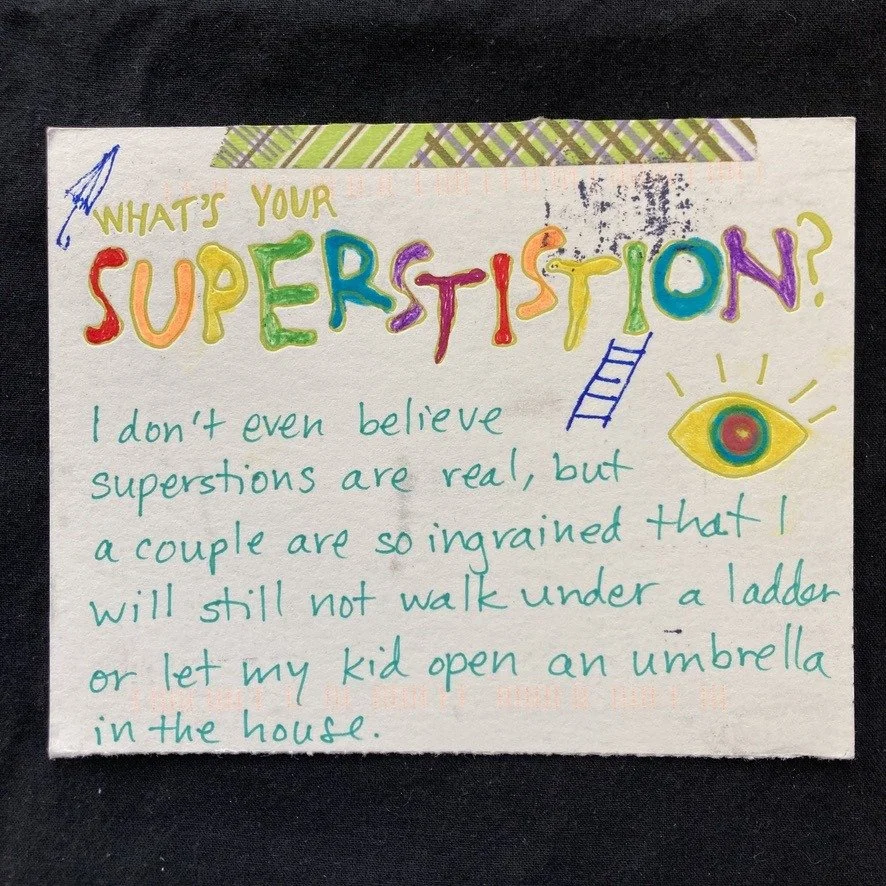 WHAT'S YOUR
SUPERSTISTION?
I don't even believe
superstions are real, but
a couple are so ingrained that I
will still not walk under a ladder
or let my kid open an umbrella
in the house.